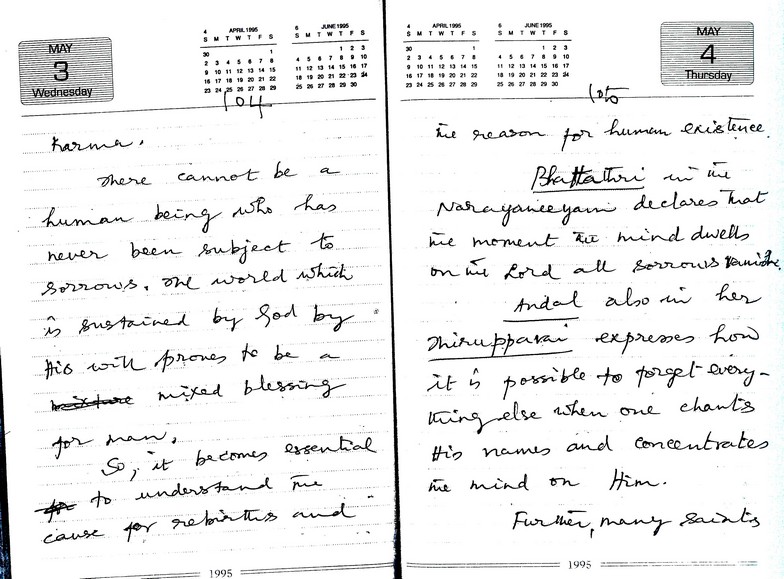 MAY
3
Wednesday
4 APRIL 1995
S M T W T F S
30 1
2 3 4 5 6 7 8
9 10 11 12 13 14 15
16 17 18 19 20 21 22
23 24 25 26 27 28 29
6 JUNE 1995
S M T W T F S
1 2 3
4 5 6 7 8 9 10
11 12 13 14 15 16 17
18 19 20 21 22 23 24
25 26 27 28 29 30
104
Karma.
There cannot be a
human being who has
never been subject to
sorrows. The world which
is sustained by God by
His will proves to be a
mixture mixed blessing
for man.
So, it becomes essential
for to understand the
cause for rebirths and
1995
4 APRIL 1995
S M T W T F S
30 1
2 3 4 5 6 7 8
9 10 11 12 13 14 15
16 17 18 19 20 21 22
23 24 25 26 27 28 29
6 JUNE 1995
S M T W T F S
1 2 3
4 5 6 7 8 9 10
11 12 13 14 15 16 17
18 19 20 21 22 23 24
25 26 27 28 29 30
MAY
4
Thursday
105
the reason for human existence.
Bhattathri in the
Narayaneeyam declares that
the moment the mind dwells
on the Lord all sorrows vanishe
Andal also in her
Thiruppavai expresses how
it is possible to forget every-
thing else when one chants
His names and concentrates
the mind on Him.
Further, many saints
1995